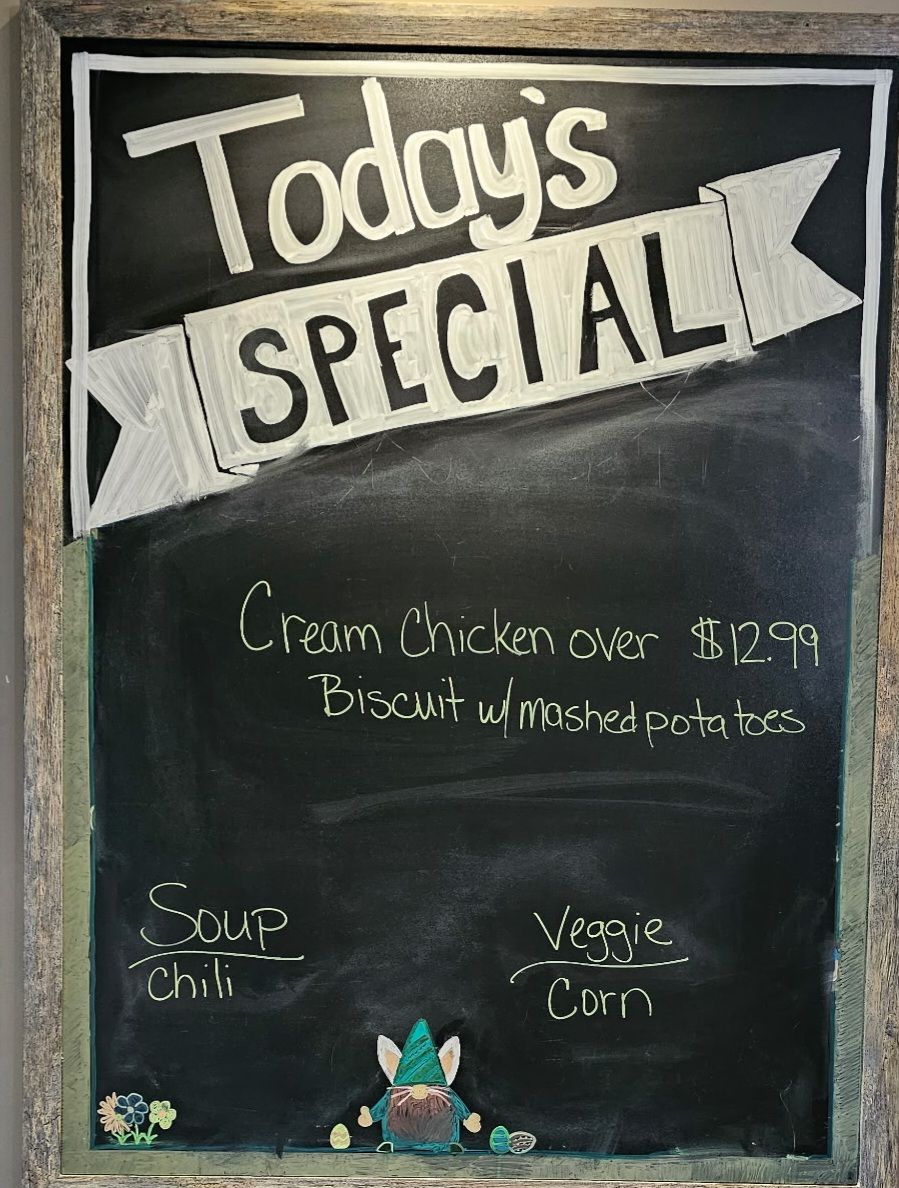 Today's
SPECIAL
Cream Chicken over $12.99
Biscuit w/ mashed potatoes
Soup
Chili
Veggie
Corn